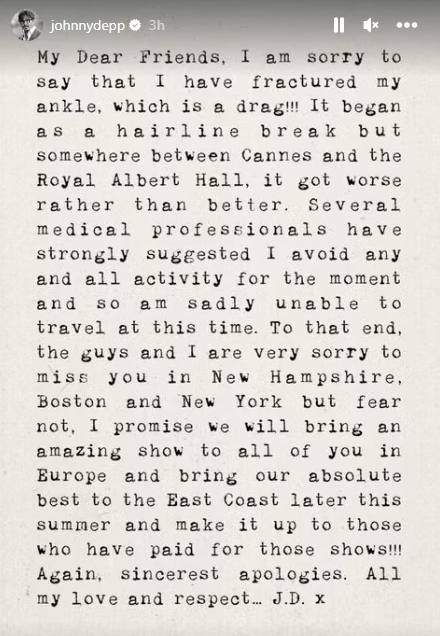 johnnydepp 3h
My Dear Friends, I am sorry to
say that I have fractured my
ankle, which is a drag!!! It began
as a hairline break but
somewhere between Cannes and the
Royal Albert Hall, it got worse
rather than better. Several
medical professionals have
strongly suggested I avoid any
and all activity for the moment
and so am sadly unable to
travel at this time. To that end,
the guys and I are very sorry to
miss you in New Hampshire,
Boston and New York but fear
not, I promise we will bring an
amazing show to all of you in
Europe and bring our absolute
best to the East Coast later this
summer and make it up to those
who have paid for those shows!!!
Again, sincerest apologies. All
my love and respect… J.D. x